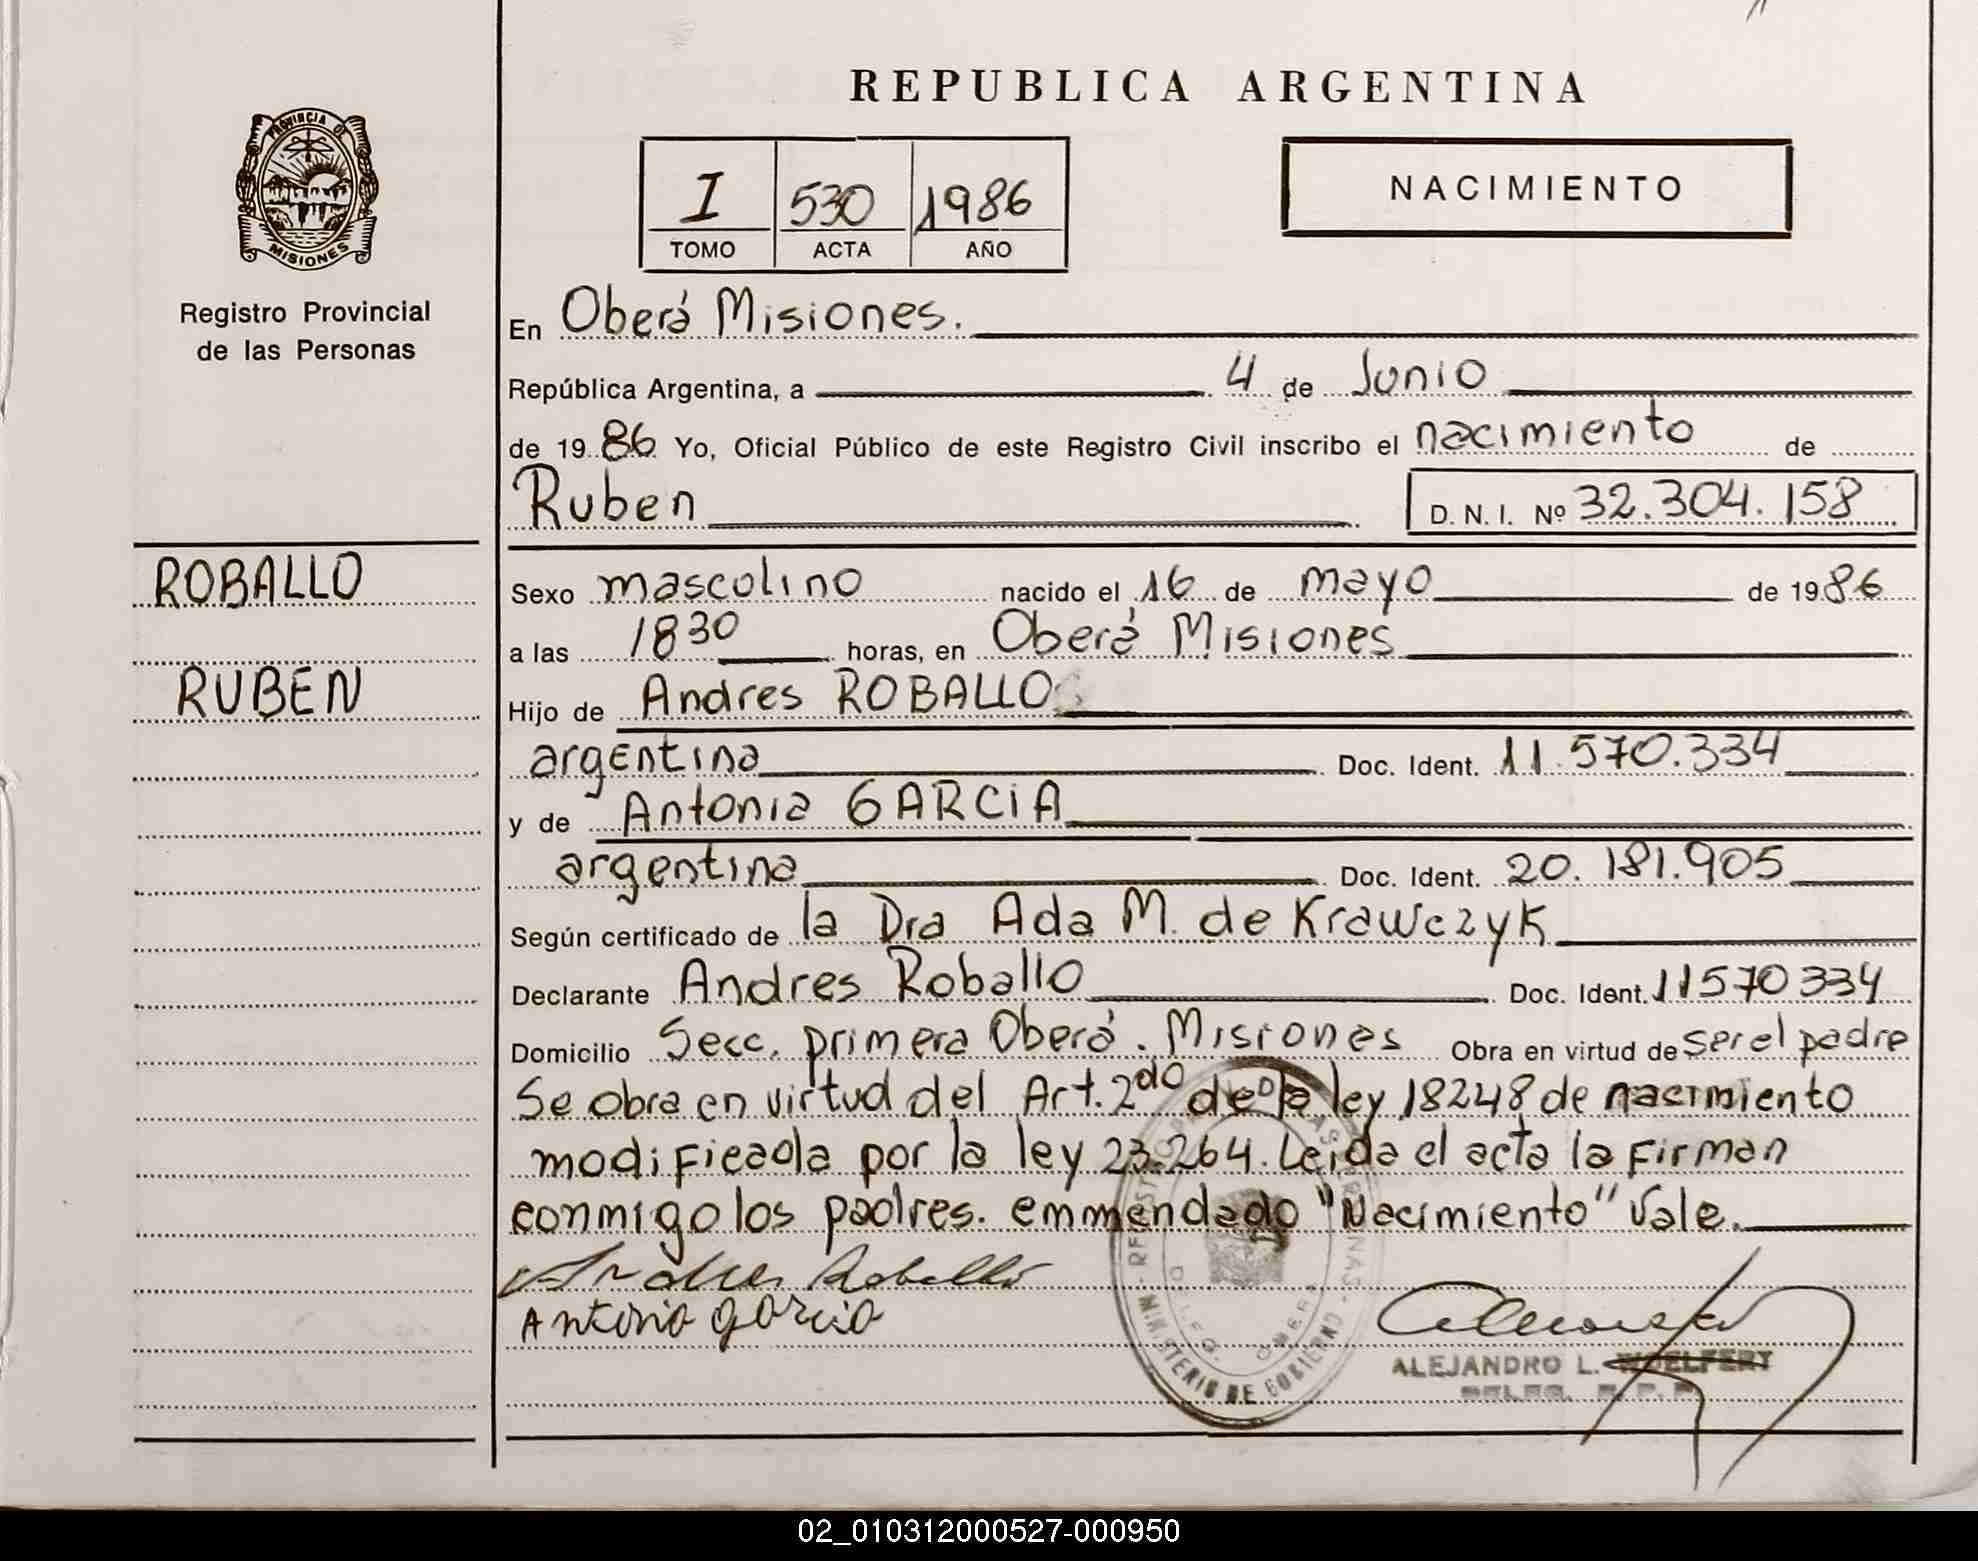 REPUBLICA ARGENTINA
PROVINCIA DE
MISIONES
Registro Provincial
de las Personas
I 530 1986
TOMO ACTA AÑO
NACIMIENTO
En Oberá Misiones.
República Argentina, a 4 de Junio
de 19 86 Yo, Oficial Público de este Registro Civil inscribo el nacimiento de
Ruben D. N. I. Nº 32.304.158
ROBALLO
RUBEN
Sexo mascolino nacido el 16 de mayo de 19 86
a las 18 30 horas, en Oberá Misiones
Hijo de Andres ROBALLO
argentina Doc. Ident. 11.570.334
y de Antonia GARCIA
argentina Doc. Ident. 20.181.905
Según certificado de la Dra Ada M. de Krawczyk
Declarante Andres Roballo Doc. Ident. 11570334
Domicilio Secc. primera Oberá. Misiones Obra en virtud de ser el padre
Se obra en virtud del Art. 2do de la ley 18248 de nacimiento
modificada por la ley 23.264. Leida el acta la firman
conmigo los padres. emmendado "Nacimiento" Vale.
Andres Roballo
Antonia garcia
MINISTERIO DE GOBIERNO
ALEJANDRO L. WOELFERT
02_010312000527-000950